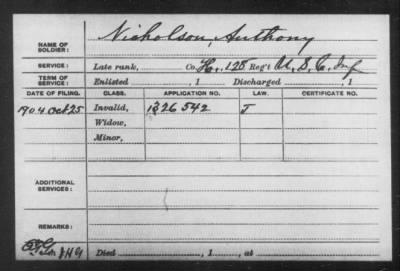 NAME OF SOLDIER: Nicholson, Anthony
SERVICE: Late rank, Co. H, 128 Reg't U.S.C. Inf
TERM OF SERVICE: Enlisted , 1 Discharged , 1
DATE OF FILING. CLASS. APPLICATION NO. LAW. CERTIFICATE NO.
1904 Oct 25 Invalid, 1326542 J
Widow,
Minor,
ADDITIONAL SERVICES:
REMARKS:
Died , 1 , at